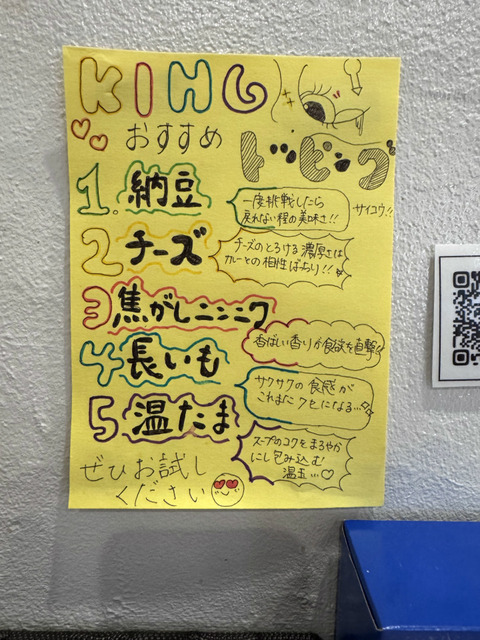 KING
おすすめ
トッピング
1. 納豆
一度挑戦したら
戻れない程の美味さ!!
サイコウ!!
2 チーズ
チーズのとろける濃厚さは
カレーとの相性ばちり!!
3 焦がしニンニク
香ばしい香りが食欲を直撃!
4 長いも
サクサクの食感が
これまたクセになる...
5 温たま
スープのコクをまろやか
にし包み込む
温玉...♡
ぜひお試し
ください